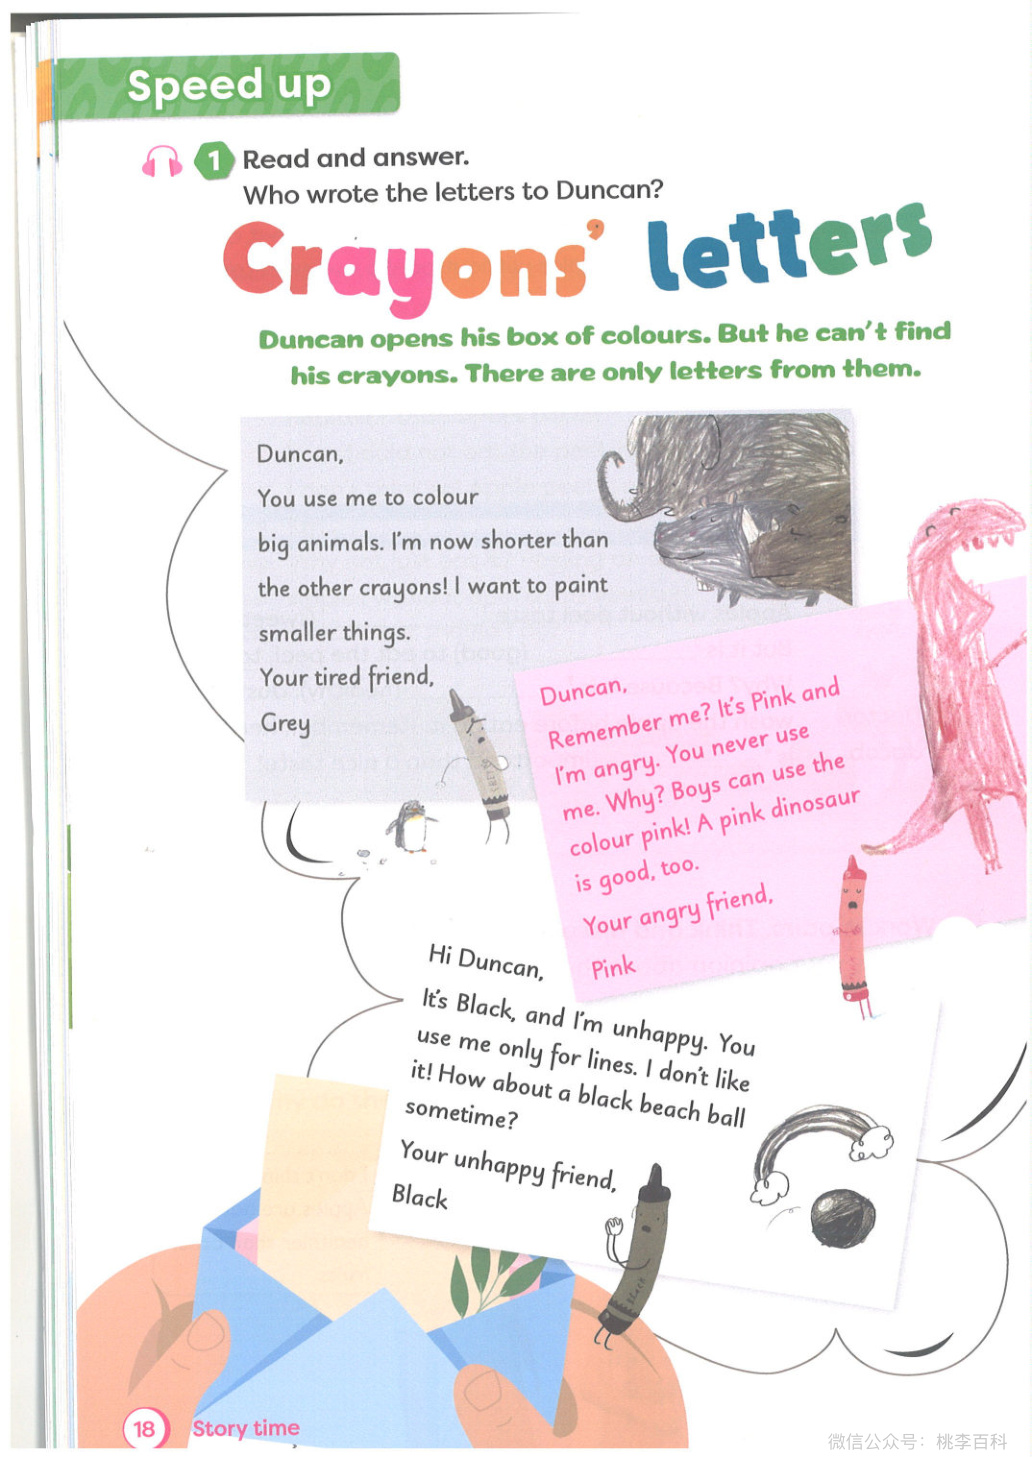 Speed up
1 Read and answer.
Who wrote the letters to Duncan?
Crayons' letters
Duncan opens his box of colours. But he can't find
his crayons. There are only letters from them.
Duncan,
You use me to colour
big animals. I'm now shorter than
the other crayons! I want to paint
smaller things.
Your tired friend,
Grey
Duncan,
Remember me? It's Pink and
I'm angry. You never use
me. Why? Boys can use the
colour pink! A pink dinosaur
is good, too.
Your angry friend,
Pink
Hi Duncan,
It's Black, and I'm unhappy. You
use me only for lines. I don't like
it! How about a black beach ball
sometime?
Your unhappy friend,
Black
18 Story time
微信公众号：桃李百科